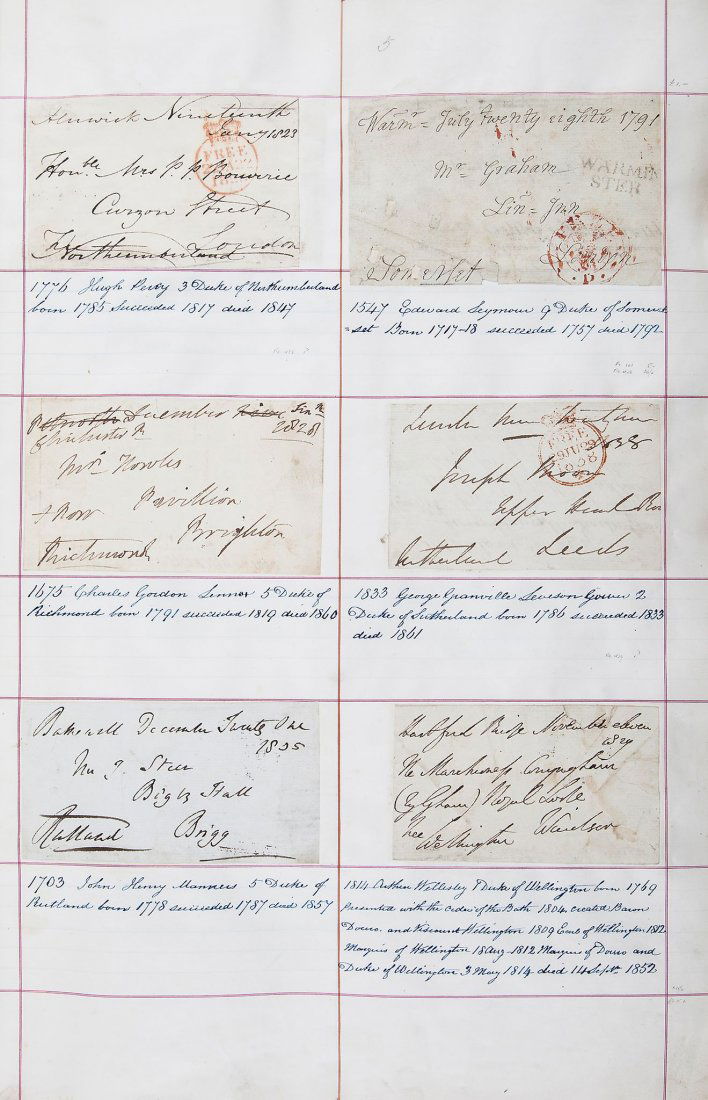 5
Alnwick Nineteenth
Jany 1823
Honble Mrs P. P. Bouverie
Curzon Street
London
Northumberland
FREE
1776 Hugh Percy 3 Duke of Northumberland
born 1785 succeeded 1817 died 1847
Warmr = July twenty eighth 1791
Mr Graham
WARMIN
STER
Lin = Inn
London
Somerset
1547 Edward Seymour 9 Duke of Somer
=set Born 1717-18 succeeded 1757 died 1792
Petworth December nine
Chichester
1828
Mrs Howles
Pavillion
Brighton
Richmond
1675 Charles Gordon Lennox 5 Duke of
Richmond born 1791 succeeded 1819 died 1860
London June Twenty nine
1838
FREE
29JU29
1838
Joseph Brown
Upper Head Row
Leeds
Sutherland
1833 George Granville Leveson Gower 2
Duke of Sutherland born 1786 succeeded 1833
died 1861
Bakewell December Twenty One
1835
Mr J. Steer
Bigby Hall
Brigg
Rutland
1703 John Henry Manners 5 Duke of
Rutland born 1778 succeeded 1787 died 1857
Hartford Bridge November eleven
1829
The Marchioness Conyngham
Royal Lodge
Windsor
Wellington
1814 Arthur Wellesley 1 Duke of Wellington born 1769
Presented with the order of the Bath 1804, created Baron
Douro and Viscount Wellington 1809 Earl of Wellington 1812
Marquis of Wellington 18 Aug 1812 Marquis of Douro and
Duke of Wellington 3 May 1814 died 14 Septr 1852